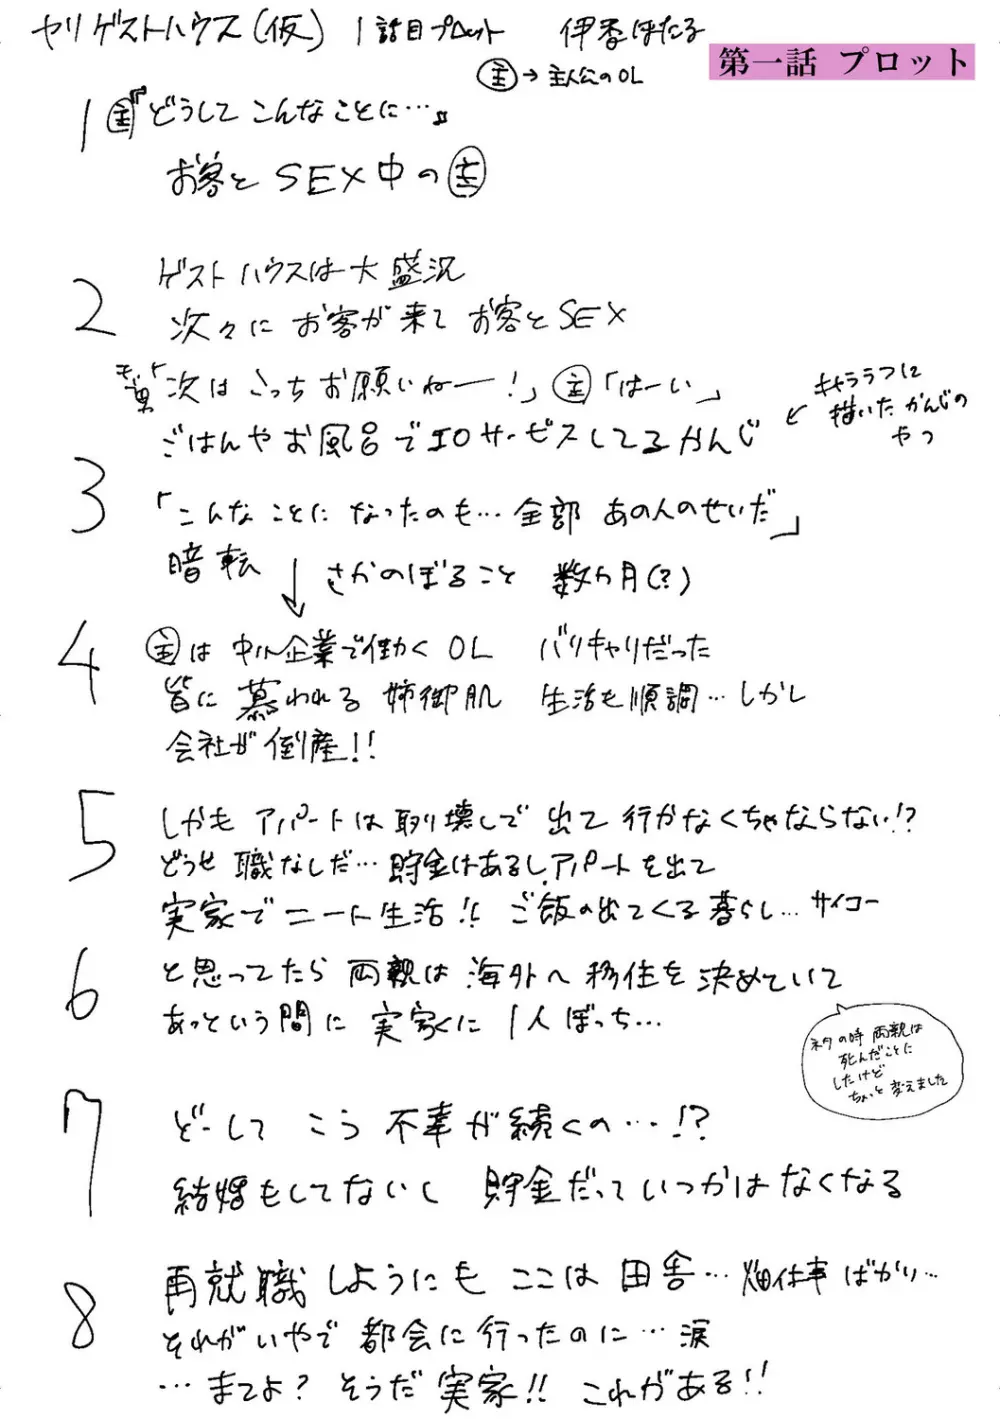 ヤリゲストハウス(仮) 1話目プロット 伊香ほたる
第一話 プロット
主→主人公のOL
1 主『どうしてこんなことに…』
お客とSEX中の主
2 ゲストハウスは大盛況
次々にお客が来てお客とSEX
モブ男「次はこっちお願いねー!」主「はーい」
ごはんやお風呂でエロサービスしてるかんじ
キャララフに
描いたかんじの
やつ
3 「こんなことになったのも…全部あの人のせいだ」
暗転 ↓ さかのぼること 数カ月(?)
4 主は中小企業で働くOL バリキャリだった
皆に慕われる姉御肌 生活も順調…しかし
会社が倒産!!
5 しかもアパートは取り壊しで出て行かなくちゃならない!?
どうせ職なしだ…貯金はあるし、アパートを出て
実家でニート生活!! ご飯の出てくる暮らし…サイコー
6 と思ってたら両親は海外へ移住を決めていて
あっという間に実家に1人ぼっち…
ネタの時両親は
死んだことに
したけど
ちょっと変えました
7 どーしてこう不幸が続くの…!?
結婚もしてないし 貯金だっていつかはなくなる
8 再就職しようにもここは田舎…畑仕事ばかり…
それがいやで都会に行ったのに…涙
…まてよ?そうだ実家!! これがある!!